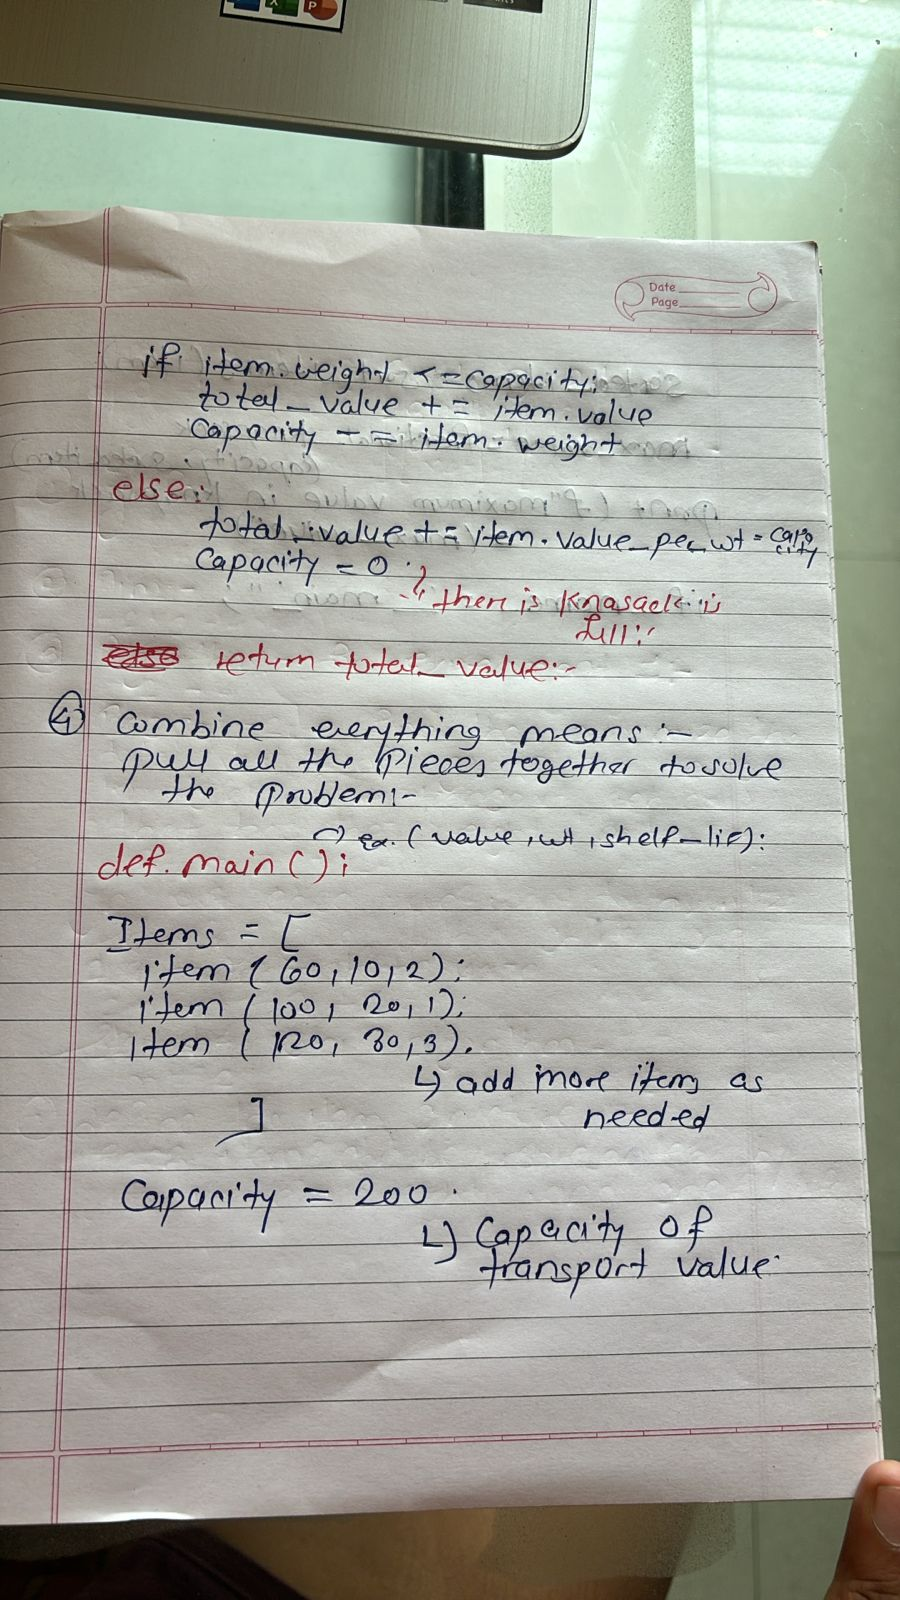 Date
Page
if item.weight <= capacity:
total_value += item.value
Capacity -= item.weight
else:
total_value += item.value_per_wt = capacity
Capacity = 0.
↳ there is knasack is
full:-
else return total_value:-
④ Combine everything means:-
pull all the pieces together to solve
the problem:-
→ ex. (value, wt, shelf-lif):
def.main();
Items = [
item (60, 10, 2);
item (100, 20, 1);
item (120, 30, 3).
↳ add more items as
needed
]
Capacity = 200.
↳ Capacity of
transport value.